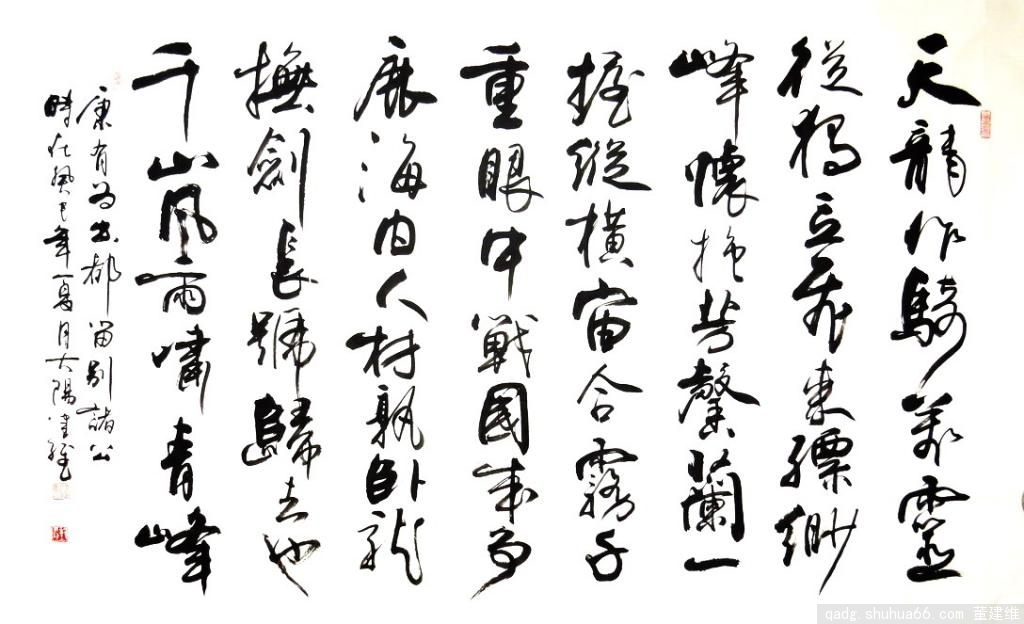 天龍作騎萬靈
從獨立飛來縹緲
峰懷抱芳馨蘭一
握縱橫宙合霧千
重眼中戰國成爭
鹿海內人材孰卧龍
撫劍長號歸去也
千山風雨嘯青峰
康有為出都留別諸公
時在癸巳年夏月大陽建維
qadg.shuhua66.com 董建维